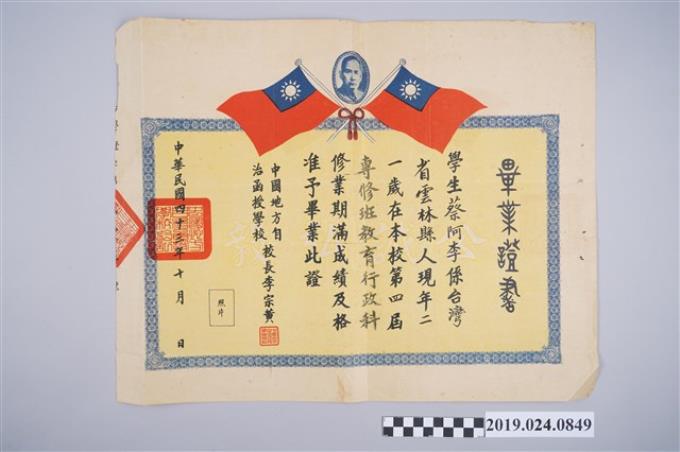 畢業證書
學生蔡阿李係台灣
省雲林縣人現年二
一歲在本校第四屆
專修班教育行政科
修業期滿成績及格
准予畢業此證
中國地方自
治函授學校
校長李宗黃
照片
中華民國四十三年十月 日
2019.024.0849